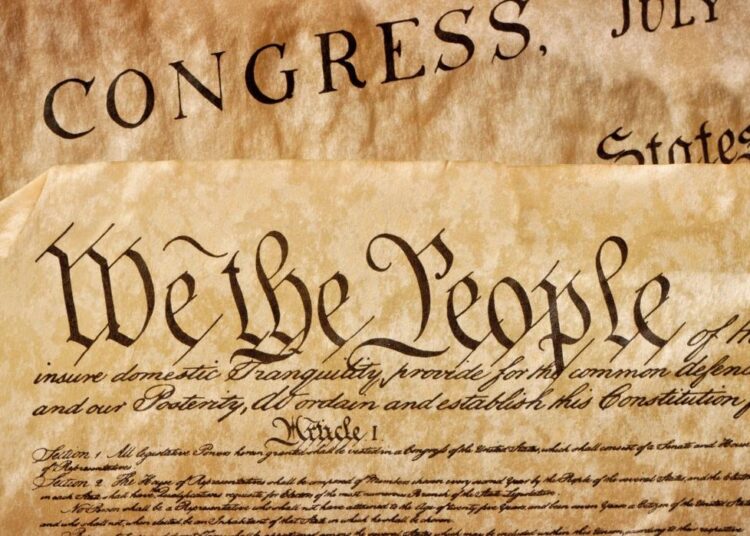 CONGRESS, JULY
States
We the People of the
insure domestic Tranquility, provide for the common defence
and our Posterity, do ordain and establish this Constitution
Article I.
Section 1. All legislative Powers herein granted shall be vested in a Congress of the United States, which shall consist of a Senate and House
of Representatives.
Section 2. The House of Representatives shall be composed of Members chosen every second Year by the People of the several States, and the
in each State shall have Qualifications requisite for Electors of the most numerous Branch of the State Legislature.
No Person shall be a Representative who shall not have attained to the Age of twenty five Years, and been seven Years a Citizen of the United States
and who shall not, when elected, be an Inhabitant of that State in which he shall be chosen.